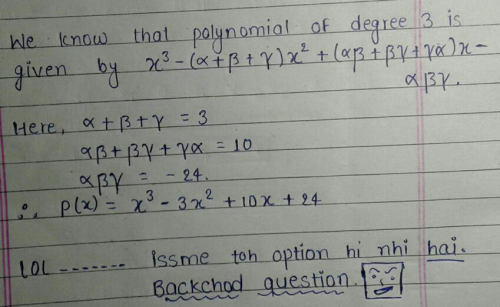 We know that polynomial of degree 3 is
given by x³ - (α + β + γ)x² + (αβ + βγ + γα)x -
αβγ.
Here, α + β + γ = 3
αβ + βγ + γα = 10
αβγ = -24.
∴ p(x) = x³ - 3x² + 10x + 24
LOL ------- Issme toh option hi nhi hai.
Backchod question.